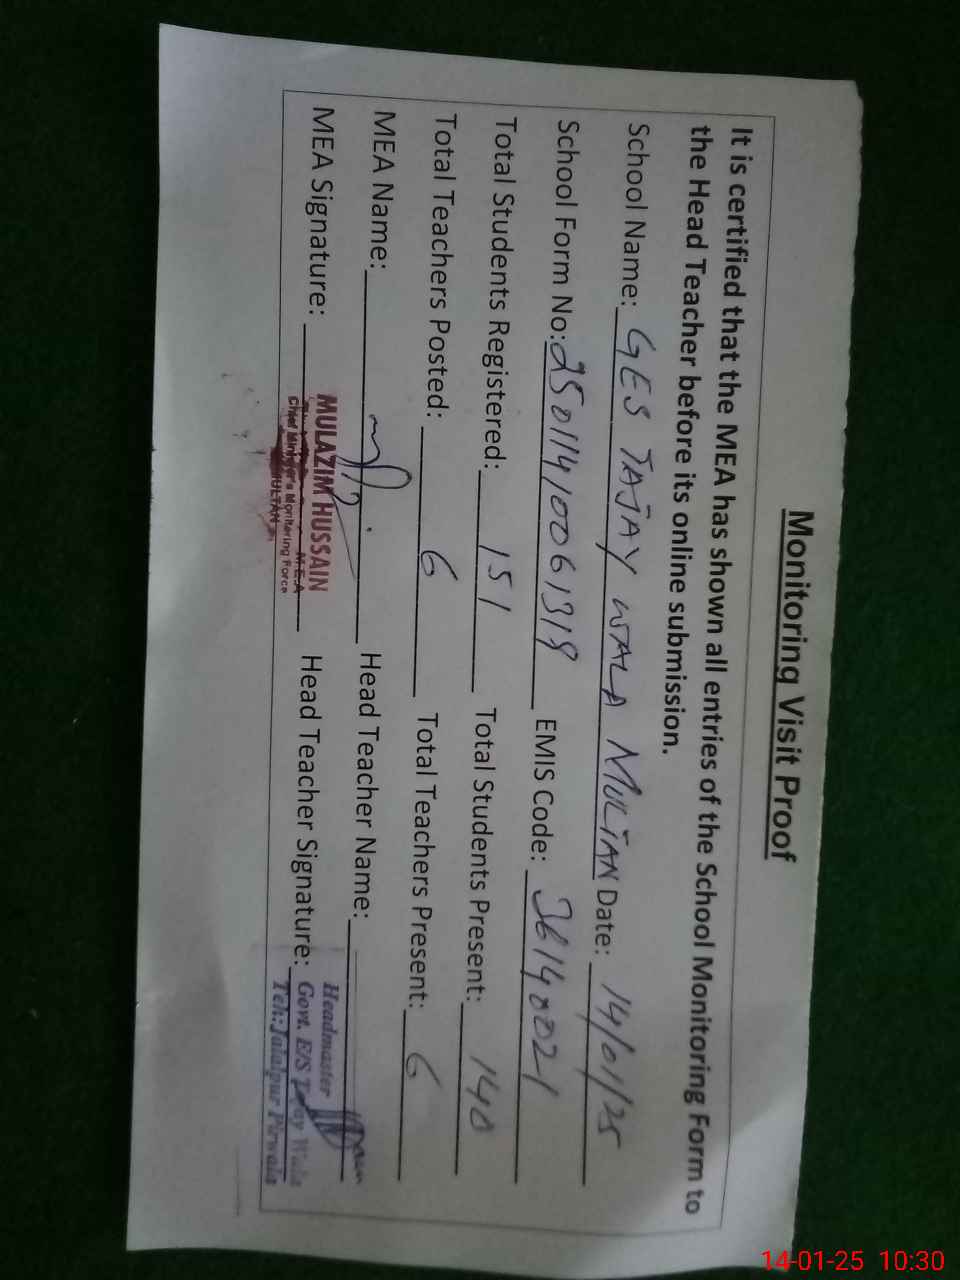 Monitoring Visit Proof
It is certified that the MEA has shown all entries of the School Monitoring Form to
the Head Teacher before its online submission.
School Name: GES TAJAY WALA MULTAN Date: 14/01/25
School Form No: 2501141006 1319 EMIS Code: 36140021
Total Students Registered: 151 Total Students Present: 140
Total Teachers Posted: 6 Total Teachers Present: 6
MEA Name: Head Teacher Name:
MEA Signature: Head Teacher Signature:
MULAZIM HUSSAIN
M.E.A
Chief Minister's Monitoring Force
MULTAN
Headmaster
Govt. E/S Wala
Teh: Jalalpur Pirwala
14-01-25 10:30